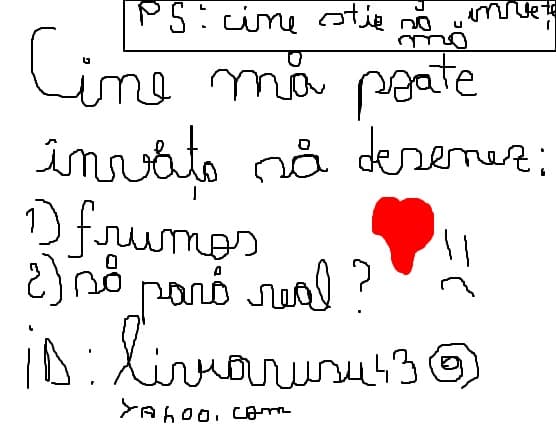 PS: cine stie să mă învețe
Cine mă poate
învăța să desenez:
1) frumos
2) să pară real ?
iD: livrarusu43@
Yahoo.com